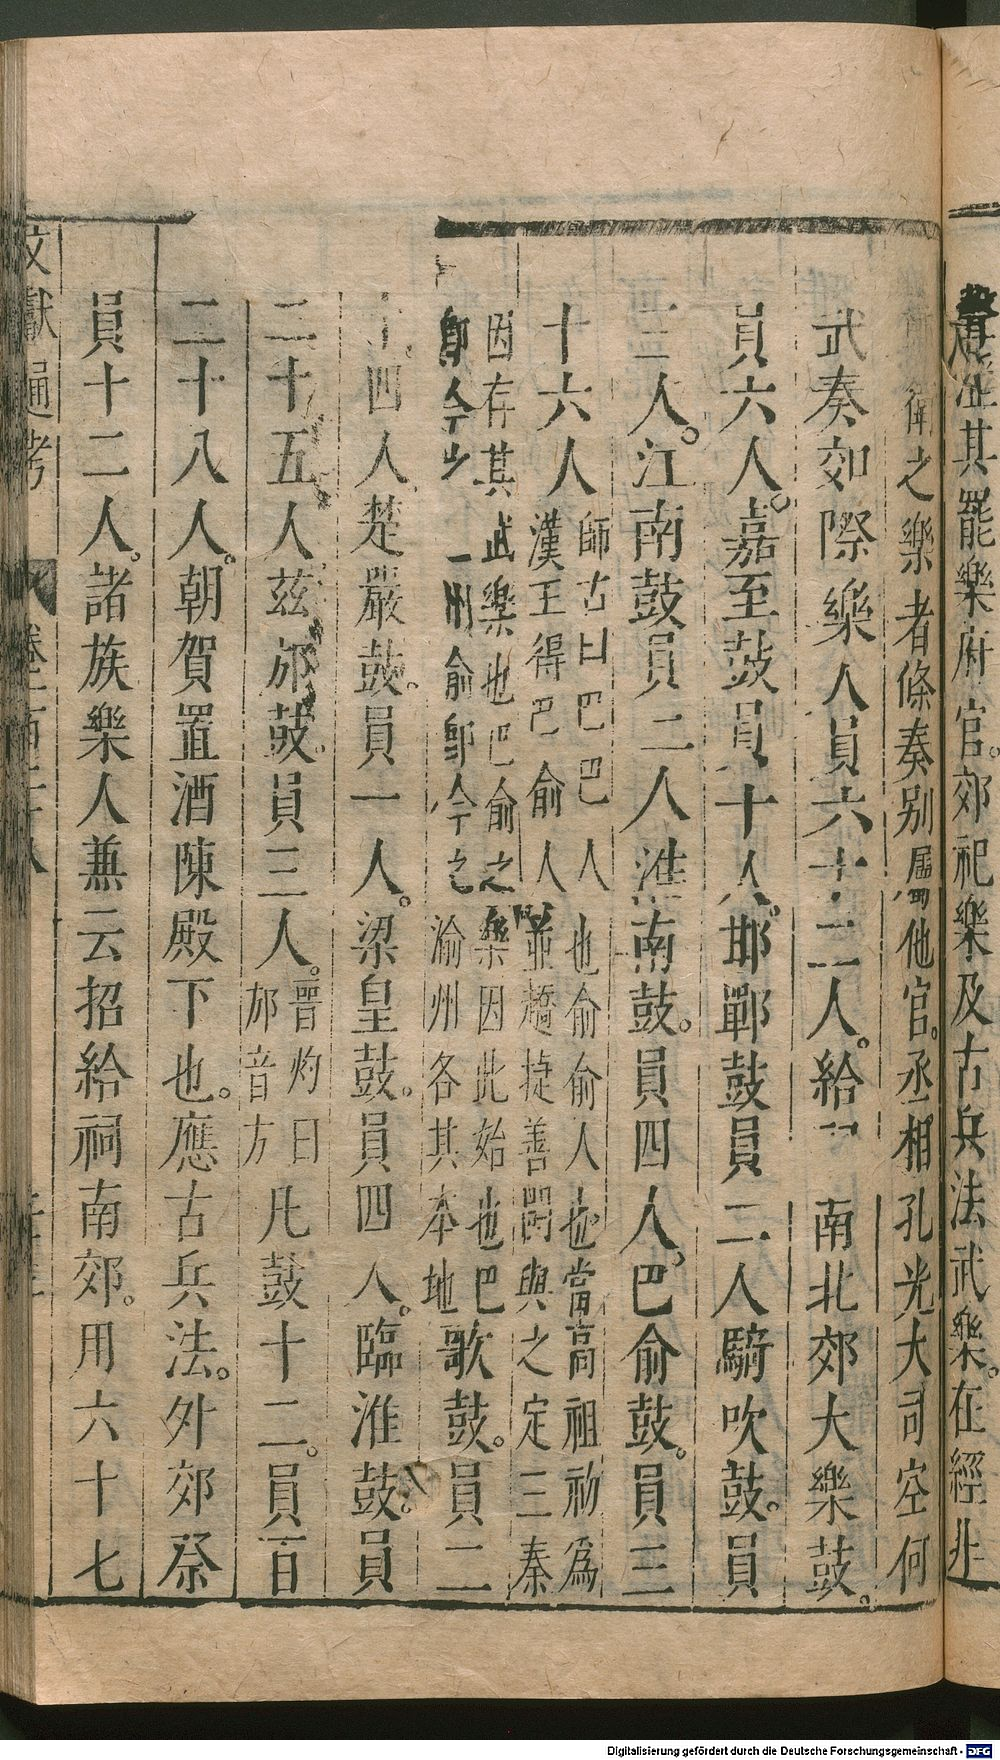 其罷樂府官。郊祀樂及古兵法武樂。在經非
衛之樂者條奏别屬他官。丞相孔光大司空何
武奏郊際樂人員六十二人。給 南北郊大樂鼓。
員六人。嘉至鼓員十人。邯鄲鼓員二人騎吹鼓。員
三人。江南鼓員二人淮南鼓。員四人。巴俞鼓。員三
十六人
師古曰巴巴人也俞俞人也當高祖初爲
漢王得巴俞人並趫捷善鬪與之定三秦
因存其武樂也巴俞之樂因此始也巴
即今之 州俞即今之渝州各其本地
歌鼓。員二
十四人。楚嚴鼓。員一人。梁皇鼓。員四人。臨淮鼓。員
二十五人茲邡鼓。員三人。
晋灼曰
邡音方
凡鼓十二。員百
二十八人。朝賀置酒陳殿下也。應古兵法。外郊祭
員十二人。諸族樂人兼云招給祠南郊。用六十七
文獻通考 卷一百二十八